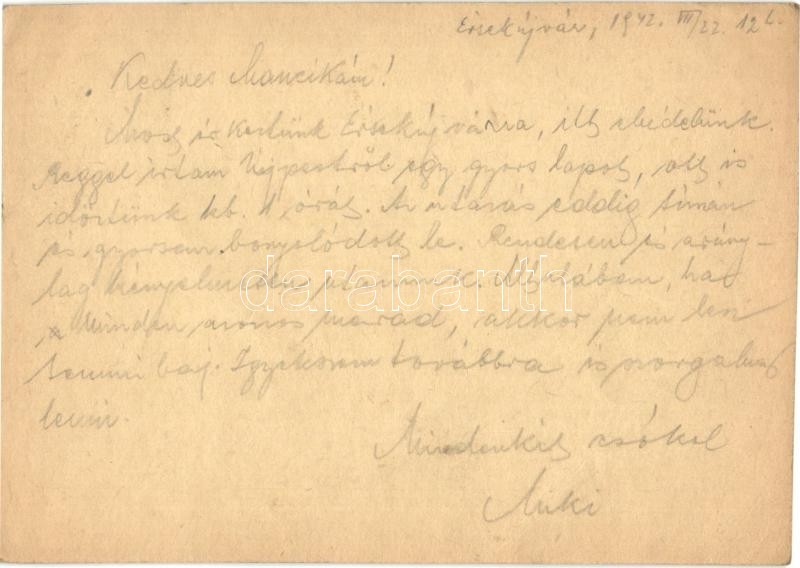 Érsekújvár, 1942. VII/22. 12 h.
Kedves Mancikám!
Most érkeztünk Érsekújvárra, itt ebédelünk.
Reggel írtam Ujpestről egy gyors lapot, ott is
időztünk kb. 1 órát. Az utazás eddig símán
és gyorsan bonyolódott le. Rendesen és arány-
lag kényelmesen utazunk. Általában, ha
minden azonos marad, akkor nem lesz
semmi baj. Igyekszem továbbra is szorgalmas
lenni.
Mindenkit csókol
Miki
darabanth